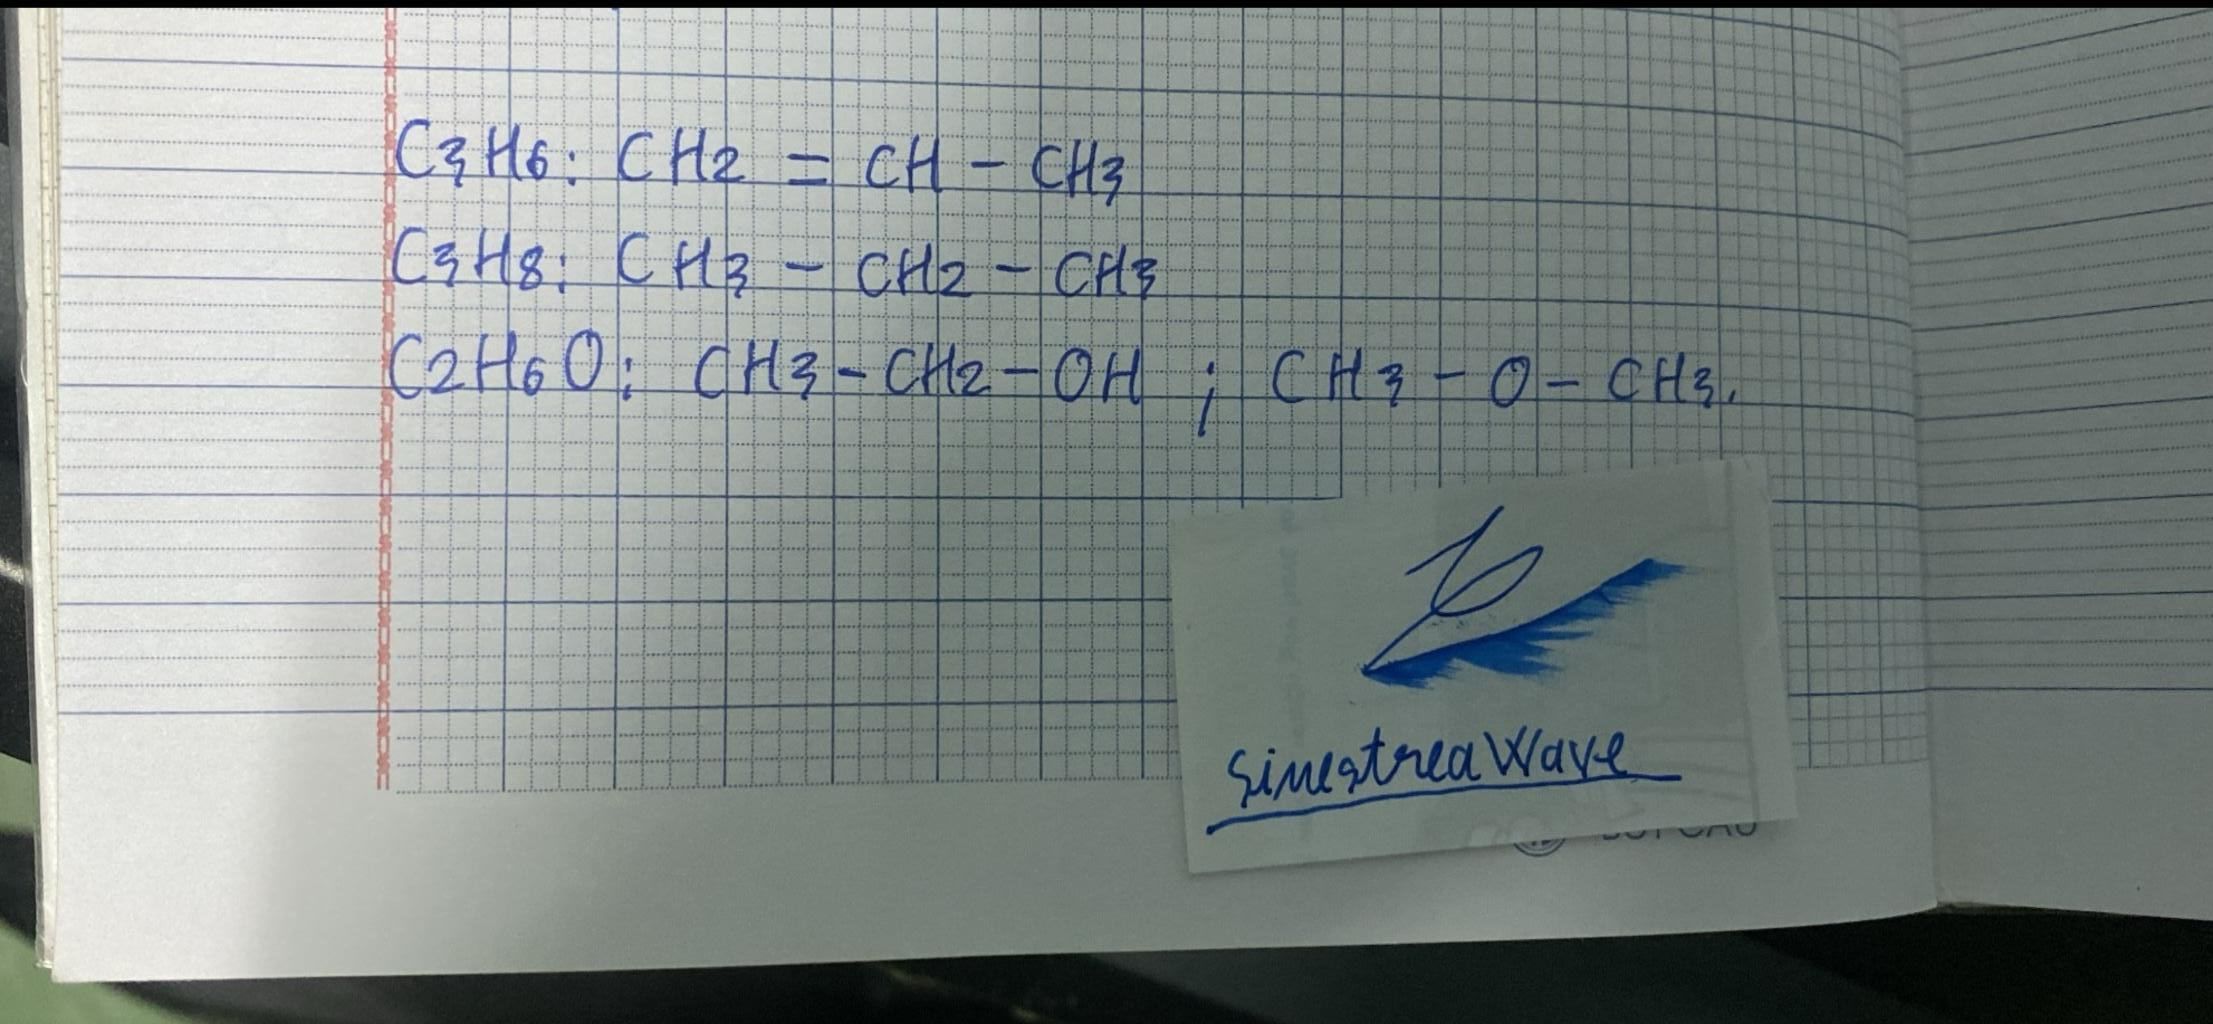 C3H6: CH2 = CH - CH3
C3H8: CH3 - CH2 - CH3
C2H6O: CH3 - CH2 - OH ; CH3 - O - CH3.
Sinestrea Wave